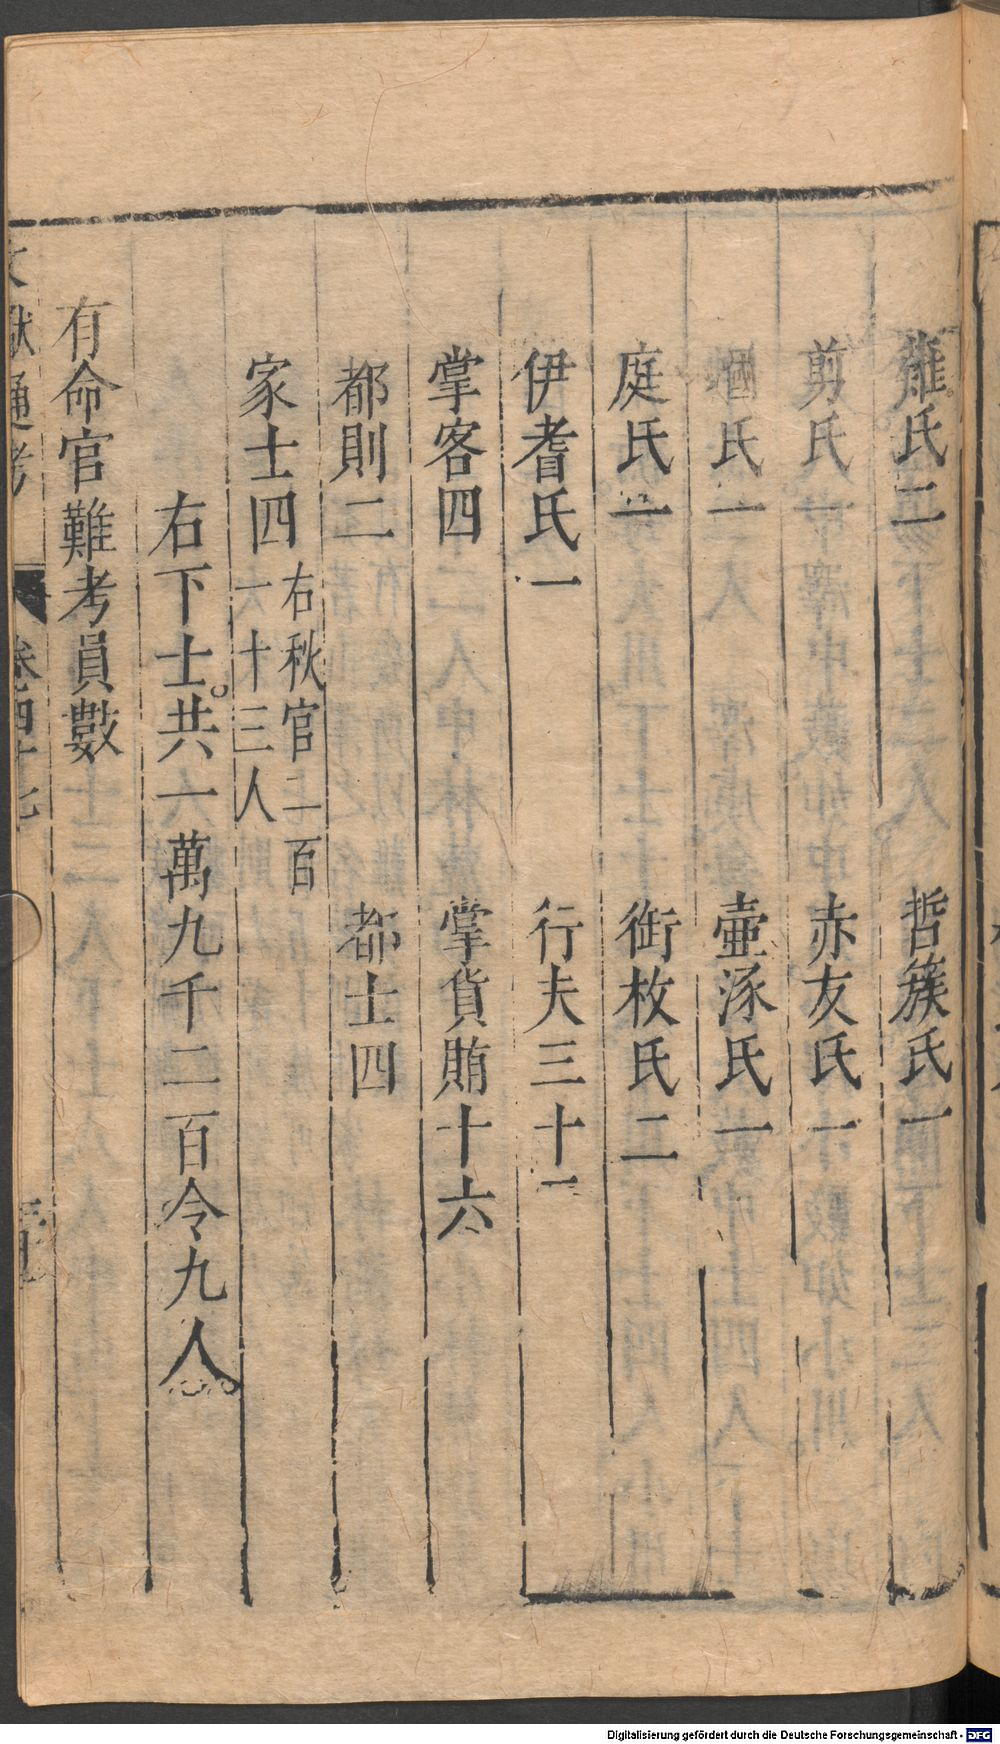 雍氏二　哲簇氏一
剪氏一　赤友氏一
蟈氏一　壷涿氏一
庭氏一　銜枚氏二
伊耆氏一　行夫三十二
掌客四　掌貨賄十六
都則二　都士四
家士四　右秋官二百六十三人
右下士共一萬九千二百令九人
有命官難考員數
文獻通考　卷四十七
Digitalisierung gefördert durch die Deutsche Forschungsgemeinschaft - DFG